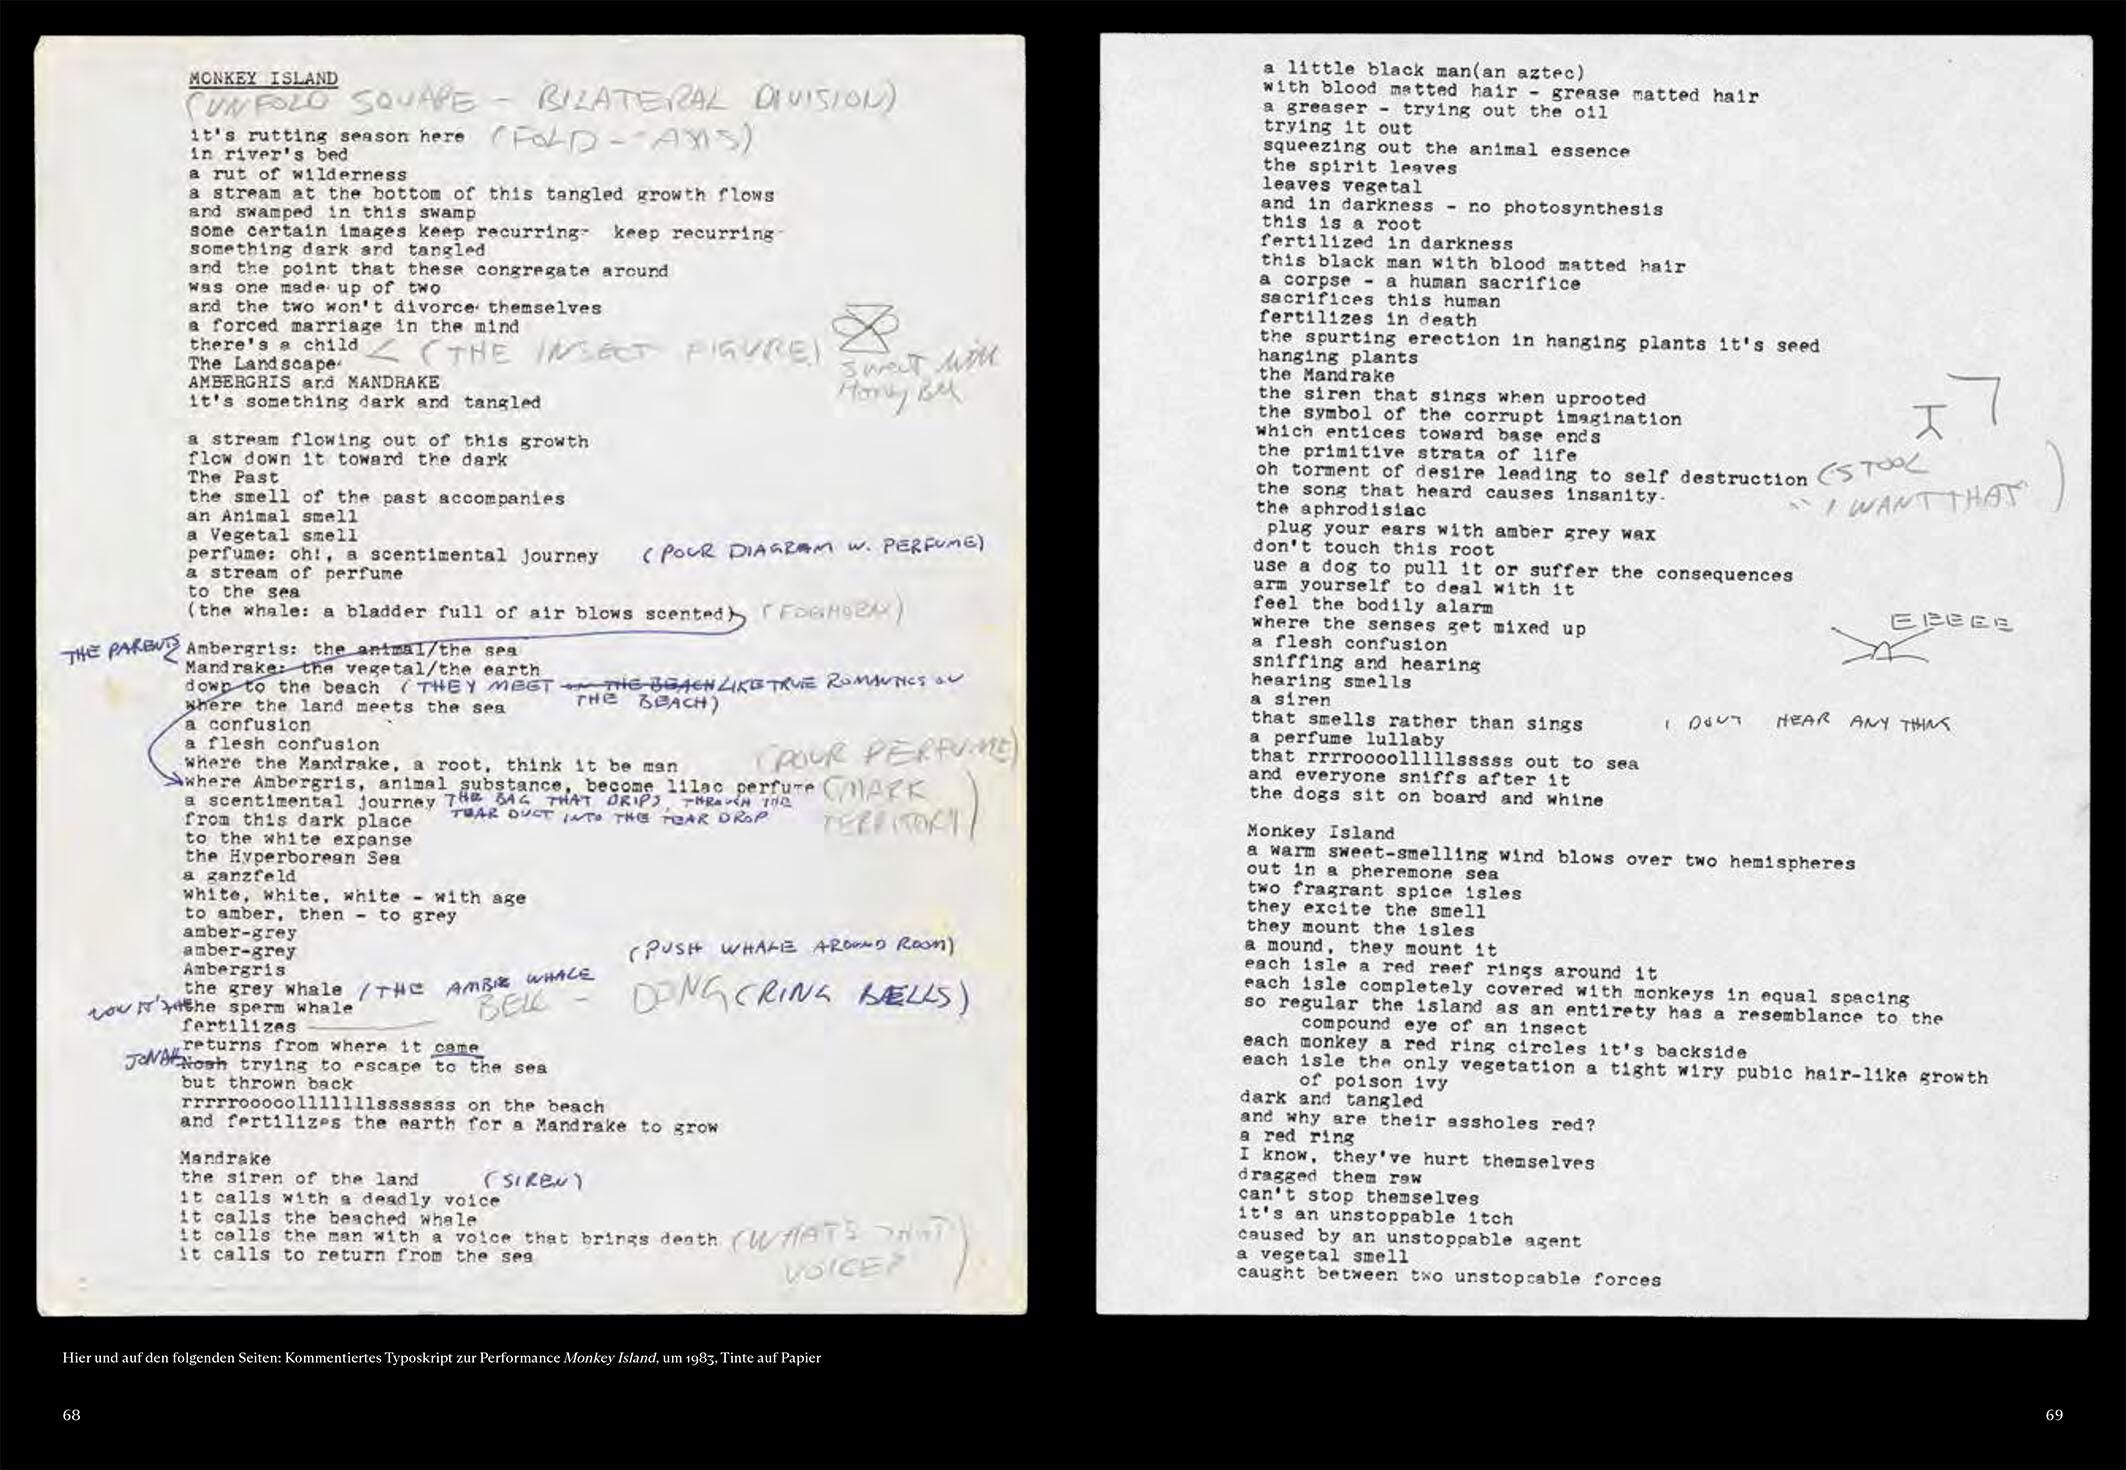 MONKEY ISLAND
(UNFOLD SQUARE - BILATERAL DIVISION)
it's rutting season here (FOLD -- AXIS)
in river's bed
a rut of wilderness
a stream at the bottom of this tangled growth flows
and swamped in this swamp
some certain images keep recurring- keep recurring-
something dark and tangled
and the point that these congregate around
was one made up of two
and the two won't divorce themselves
a forced marriage in the mind
there's a child < (THE INSECT FIGURE)
sweet with
Honey
The Landscape
AMBERGRIS and MANDRAKE
it's something dark and tangled
a stream flowing out of this growth
flow down it toward the dark
The Past
the smell of the past accompanies
an Animal smell
a Vegetal smell
perfume: oh!, a scentimental journey (POUR DIAGRAM W. PERFUME)
a stream of perfume
to the sea
(the whale: a bladder full of air blows scented) (FOGHORN)
THE PARENTS Ambergris: the animal/the sea
Mandrake: the vegetal/the earth
down to the beach (THEY MEET ON THE BEACH LIKE TRUE ROMANTICS ON
THE BEACH)
where the land meets the sea
a confusion
a flesh confusion
where the Mandrake, a root, think it be man (POUR PERFUME)
where Ambergris, animal substance, become lilac perfume (MARK
TERRITORY)
a scentimental journey THE BAG THAT DRIPS THROUGH THE
TEAR DUCT INTO THE TEAR DROP
from this dark place
to the white expanse
the Hyperborean Sea
a ganzfeld
white, white, white - with age
to amber, then - to grey
amber-grey
amber-grey (PUSH WHALE AROUND ROOM)
Ambergris
the grey whale (THE AMBER WHALE
BELL - DONG (RING BELLS)
NOW IT'S the sperm whale
fertilizes
returns from where it came
JONAH Noah trying to escape to the sea
but thrown back
rrrrrooooolllllllsssssss on the beach
and fertilizes the earth for a Mandrake to grow
Mandrake
the siren of the land (SIREN)
it calls with a deadly voice
it calls the beached whale
it calls the man with a voice that brings death (WHAT'S THAT
VOICE?)
it calls to return from the sea
Hier und auf den folgenden Seiten: Kommentiertes Typoskript zur Performance Monkey Island, um 1983, Tinte auf Papier
68
a little black man(an aztec)
with blood matted hair - grease matted hair
a greaser - trying out the oil
trying it out
squeezing out the animal essence
the spirit leaves
leaves vegetal
and in darkness - no photosynthesis
this is a root
fertilized in darkness
this black man with blood matted hair
a corpse - a human sacrifice
sacrifices this human
fertilizes in death
the spurting erection in hanging plants it's seed
hanging plants
the Mandrake
the siren that sings when uprooted
the symbol of the corrupt imagination
which entices toward base ends
the primitive strata of life
oh torment of desire leading to self destruction (STOOL
"I WANT THAT")
the song that heard causes insanity.
the aphrodisiac
plug your ears with amber grey wax
don't touch this root
use a dog to pull it or suffer the consequences
arm yourself to deal with it
feel the bodily alarm
where the senses get mixed up EEEEE
a flesh confusion
sniffing and hearing
hearing smells
a siren
that smells rather than sings I DON'T HEAR ANY THING
a perfume lullaby
that rrrroooolllllsssss out to sea
and everyone sniffs after it
the dogs sit on board and whine
Monkey Island
a warm sweet-smelling wind blows over two hemispheres
out in a pheremone sea
two fragrant spice isles
they excite the smell
they mount the isles
a mound, they mount it
each isle a red reef rings around it
each isle completely covered with monkeys in equal spacing
so regular the island as an entirety has a resemblance to the
compound eye of an insect
each monkey a red ring circles it's backside
each isle the only vegetation a tight wiry pubic hair-like growth
of poison ivy
dark and tangled
and why are their assholes red?
a red ring
I know, they've hurt themselves
dragged them raw
can't stop themselves
it's an unstoppable itch
caused by an unstoppable agent
a vegetal smell
caught between two unstoppable forces
69